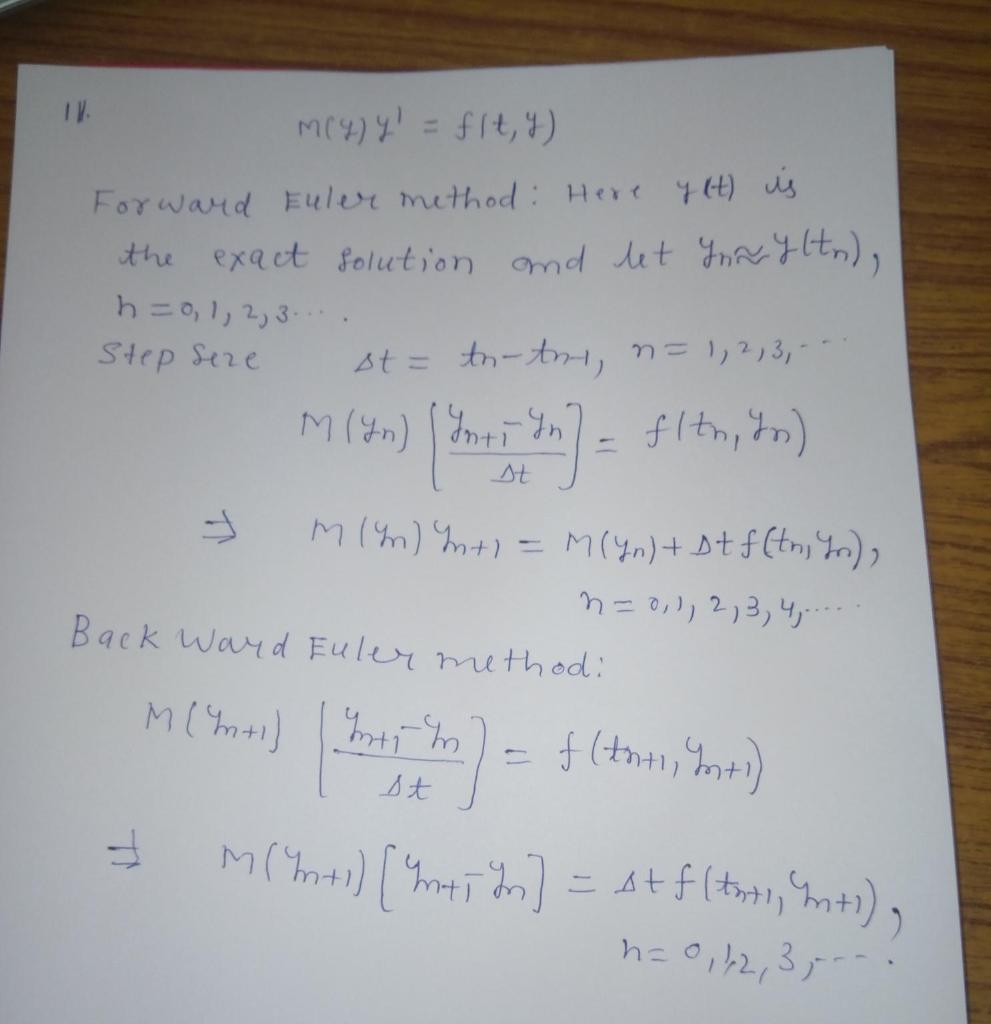 11.
M(y) y' = f(t, y)
Forward Euler method: Here y(t) is
the exact solution and let yn ≈ y(tn),
n = 0, 1, 2, 3 ....
Step Seze Δt = tn - tn-1, n = 1, 2, 3, ...
M(yn) [(yn+1 - yn)/Δt] = f(tn, yn)
⇒ M(yn) yn+1 = M(yn) + Δt f(tn, yn),
n = 0, 1, 2, 3, 4, .....
Back Ward Euler method:
M(yn+1) [(yn+1 - yn)/Δt] = f(tn+1, yn+1)
⇒ M(yn+1) [yn+1 - yn] = Δt f(tn+1, yn+1),
n = 0, 1, 2, 3, ---.